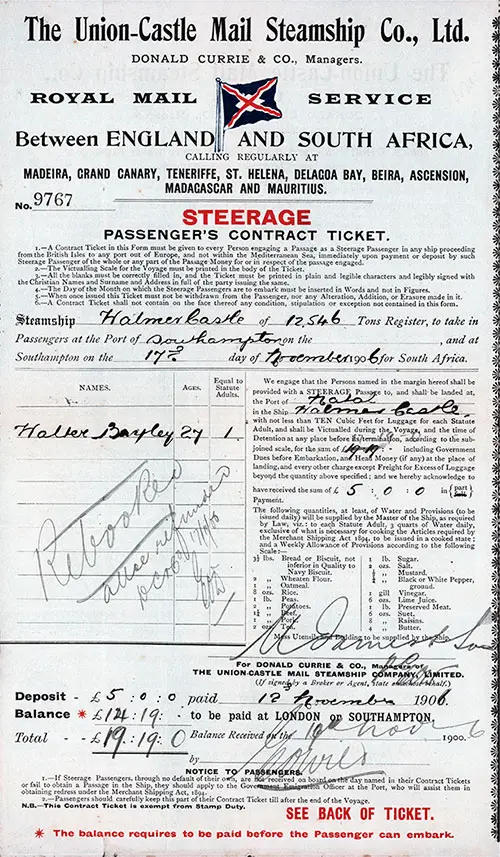 The Union-Castle Mail Steamship Co., Ltd.
DONALD CURRIE & CO., Managers.
ROYAL MAIL SERVICE
Between ENGLAND AND SOUTH AFRICA,
CALLING REGULARLY AT
MADEIRA, GRAND CANARY, TENERIFFE, ST. HELENA, DELACOA BAY, BEIRA, ASCENSION,
MADAGASCAR AND MAURITIUS.
No. 9767
STEERAGE
PASSENGER'S CONTRACT TICKET.
1.—A Contract Ticket in this Form must be given to every Person engaging a Passage as a Steerage Passenger in any ship proceeding
from the British Isles to any port out of Europe, and not within the Mediterranean Sea, immediately upon payment or deposit by such
Steerage Passenger of the whole or any part of the Passage Money for or in respect of the passage engaged.
2.—The Victualling Scale for the Voyage must be printed in the body of the Ticket.
3.—All the blanks must be correctly filled in, and the Ticket must be printed in plain and legible characters and legibly signed with
the Christian Names and Surname and Address in full of the party issuing the same.
4.—The Day of the Month on which the Steerage Passengers are to embark must be inserted in Words and not in Figures.
5.—When once issued this Ticket must not be withdrawn from the Passenger, nor any Alteration, Addition, or Erasure made in it.
6.—A Contract Ticket shall not contain on the face thereof any condition, stipulation or exception not contained in this form.
Steamship Halmer Castle of 12,546 Tons Register, to take in
Passengers at the Port of Southampton on the , and at
Southampton on the 17th day of November 1906 for South Africa.
NAMES. AGES. Equal to Statute Adults.
Walter Bayley 27 1
Rebooked
refunded
We engage that the Persons named in the margin hereof shall be
provided with a STEERAGE Passage to, and shall be landed at,
the Port of Natal
in the Ship Halmer Castle,
with not less than TEN Cubic Feet for Luggage for each Statute
Adult, and shall be Victualled during the Voyage, and the time of
Detention at any place before its termination, according to the sub-
joined scale, for the sum of £19.19.- including Government
Dues before Embarkation, and Head Money (if any) at the place of
landing, and every other charge except Freight for Excess of Luggage
beyond the quantity above specified; and we hereby acknowledge to
have received the sum of £5:0:0 in {part
Payment.
The following quantities, at least, of Water and Provisions (to be
issued daily) will be supplied by the Master of the Ship, as required
by Law, viz.: to each Statute Adult, 3 quarts of Water daily,
exclusive of what is necessary for cooking the Articles required by
the Merchant Shipping Act 1894, to be issued in a cooked state;
and a Weekly Allowance of Provisions according to the following
Scale:—
3½ lbs. Bread or Biscuit, not inferior in Quality to Navy Biscuit.
2 „ Wheaten Flour.
1 „ Oatmeal.
8 ozs. Rice.
1½ lbs. Peas.
2 „ Potatoes.
1¼ „ Beef.
1 „ Pork.
2 ozs. Tea.
1 lb. Sugar.
2 ozs. Salt.
½ „ Mustard.
¼ „ Black or White Pepper, ground.
1 gill Vinegar.
6 ozs. Lime Juice.
1 lb. Preserved Meat.
6 ozs. Suet.
8 „ Raisins.
4 „ Butter.
Mess Utensils and Bedding to be supplied by the Ship.
For DONALD CURRIE & CO., Managers of
THE UNION-CASTLE MAIL STEAMSHIP COMPANY, LIMITED.
(If signed by a Broker or Agent, state on whose behalf.)
Deposit - £5:0:0 paid 12th November 1906.
Balance * £14:19: - to be paid at LONDON or SOUTHAMPTON.
Total - £19:19:0 Balance Received on the 16th Novr 1900, 6
by
NOTICE TO PASSENGERS.
1.—If Steerage Passengers, through no default of their own, are not received on board on the day named in their Contract Tickets
or fail to obtain a Passage in the Ship, they should apply to the Government Emigration Officer at the Port, who will assist them in
obtaining redress under the Merchant Shipping Act, 1894.
2.—Passengers should carefully keep this part of their Contract Ticket till after the end of the Voyage.
N.B.—This Contract Ticket is exempt from Stamp Duty.
SEE BACK OF TICKET.
* The balance requires to be paid before the Passenger can embark.